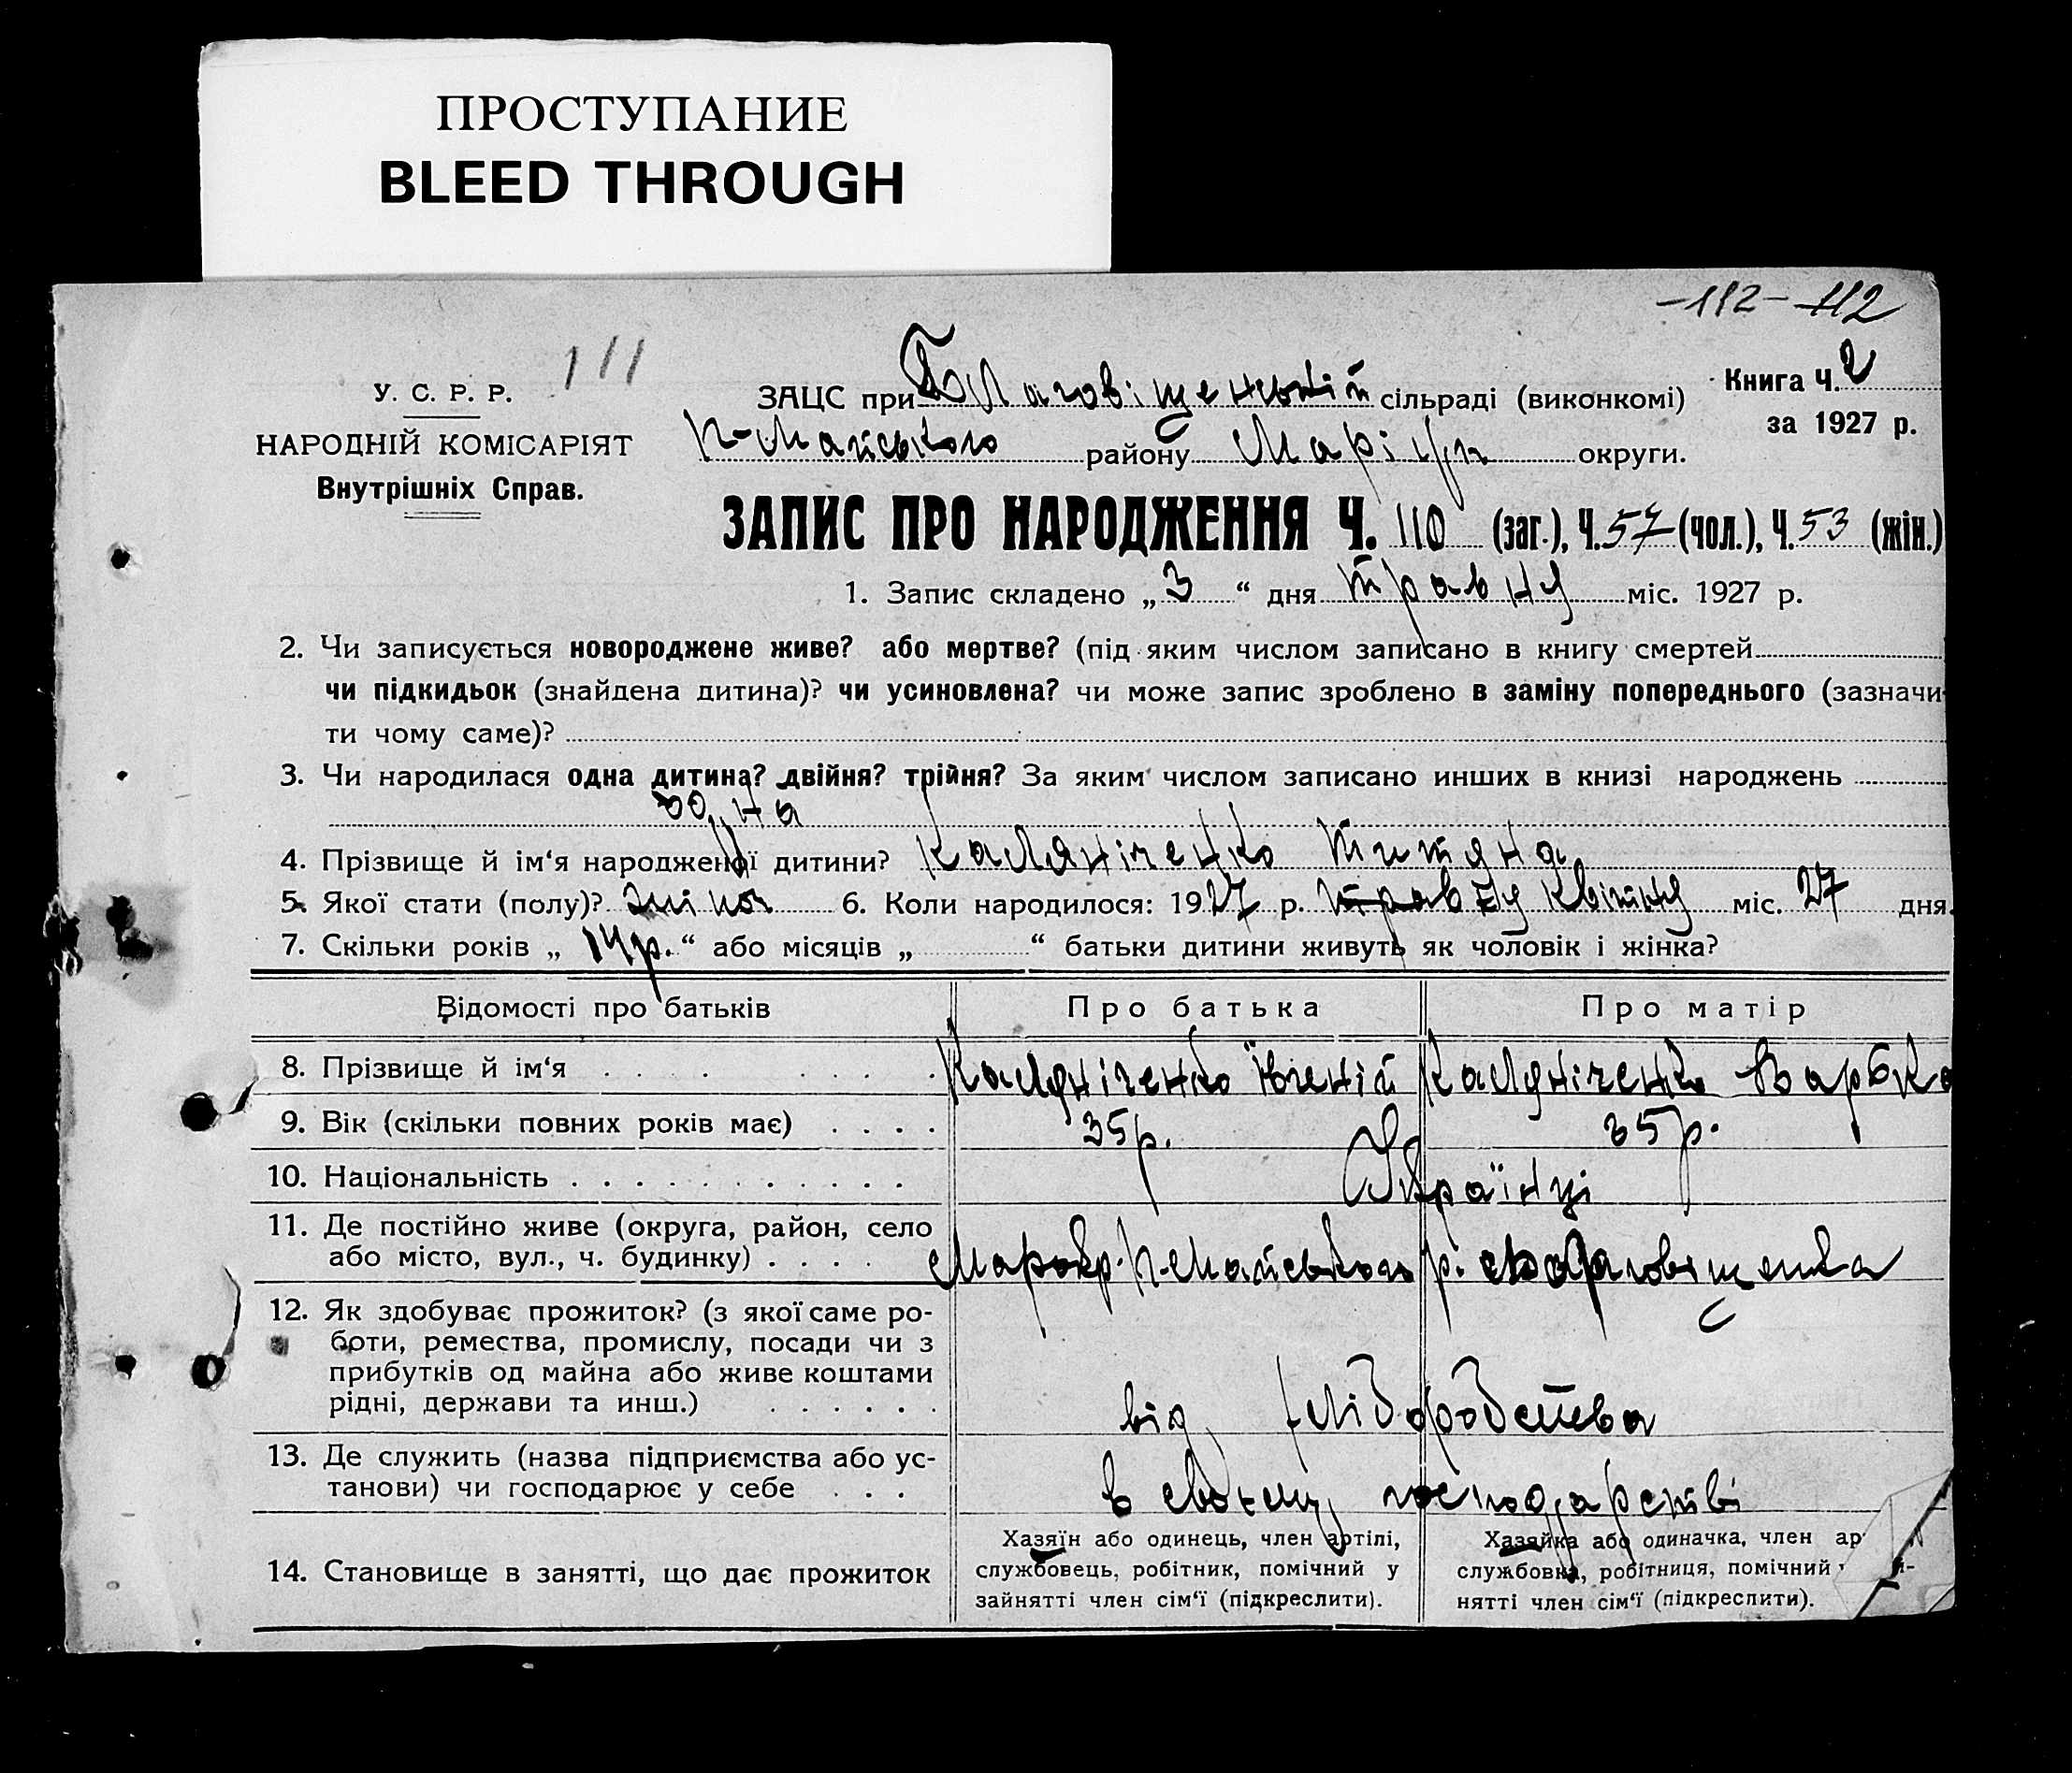 ПРОСТУПАНИЕ
BLEED THROUGH
-112- 112
111
У. С. Р. Р.
НАРОДНІЙ КОМІСАРІЯТ
Внутрішніх Справ.
ЗАЦС при Благовіщенській сільраді (виконкомі)
П-Майського району Маріуп округи.
Книга Ч. 2
за 1927 р.
ЗАПИС ПРО НАРОДЖЕННЯ Ч. 110 (заг.), Ч. 57 (чол.), Ч. 53 (жін.)
1. Запис складено „ 3 “ дня травня міс. 1927 р.
2. Чи записується новороджене живе? або мертве? (під яким числом записано в книгу смертей
чи підкидьок (знайдена дитина)? чи усиновлена? чи може запис зроблено в заміну попереднього (зазначи-
ти чому саме)?
3. Чи народилася одна дитина? двійня? трійня? За яким числом записано инших в книзі народжень
одна
4. Прізвище й ім‘я народженої дитини? Каляніченко Титяна
5. Якої стати (полу)? жіноч 6. Коли народилося: 1927 р. травня квітня міс. 27 дня.
7. Скільки років „ 14р. “ або місяців „ “ батьки дитини живуть як чоловік і жінка?
Відомості про батьків Про батька Про матір
8. Прізвище й ім‘я . . . . Каляніченко Каляніченко Варька
9. Вік (скільки повних років має) . . . . 35р. 35р.
10. Національність . . . . . . . . . . . Українці
11. Де постійно живе (округа, район, село
або місто, вул., ч. будинку) . . . . Марокр. П-Майського р. Благовіщенка
12. Як здобуває прожиток? (з якої саме ро-
боти, ремества, промислу, посади чи з
прибутків од майна або живе коштами
рідні, держави та инш.) . . . . . . від хлібородства
13. Де служить (назва підприємства або ус-
танови) чи господарює у себе . . . в своєму господарстві
14. Становище в занятті, що дає прожиток
Хазяїн або одинець, член артілі,
службовець, робітник, помічний у
зайнятті член сім‘ї (підкреслити).
Хазяйка або одиначка, член ар
службовка, робітниця, помічний
нятті член сім‘ї (підкреслити).